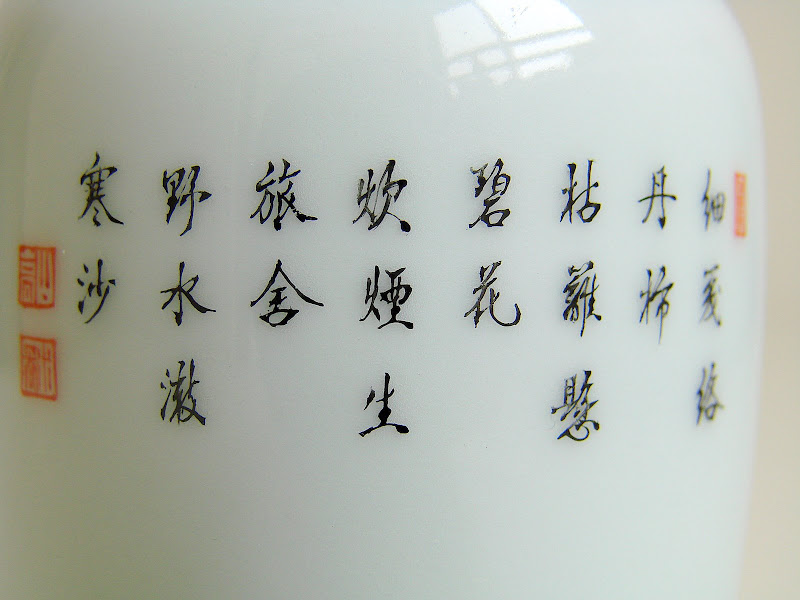 細蔓絡
丹柿
枯籬懸
碧花
炊煙生
旅舍
野水
寒沙